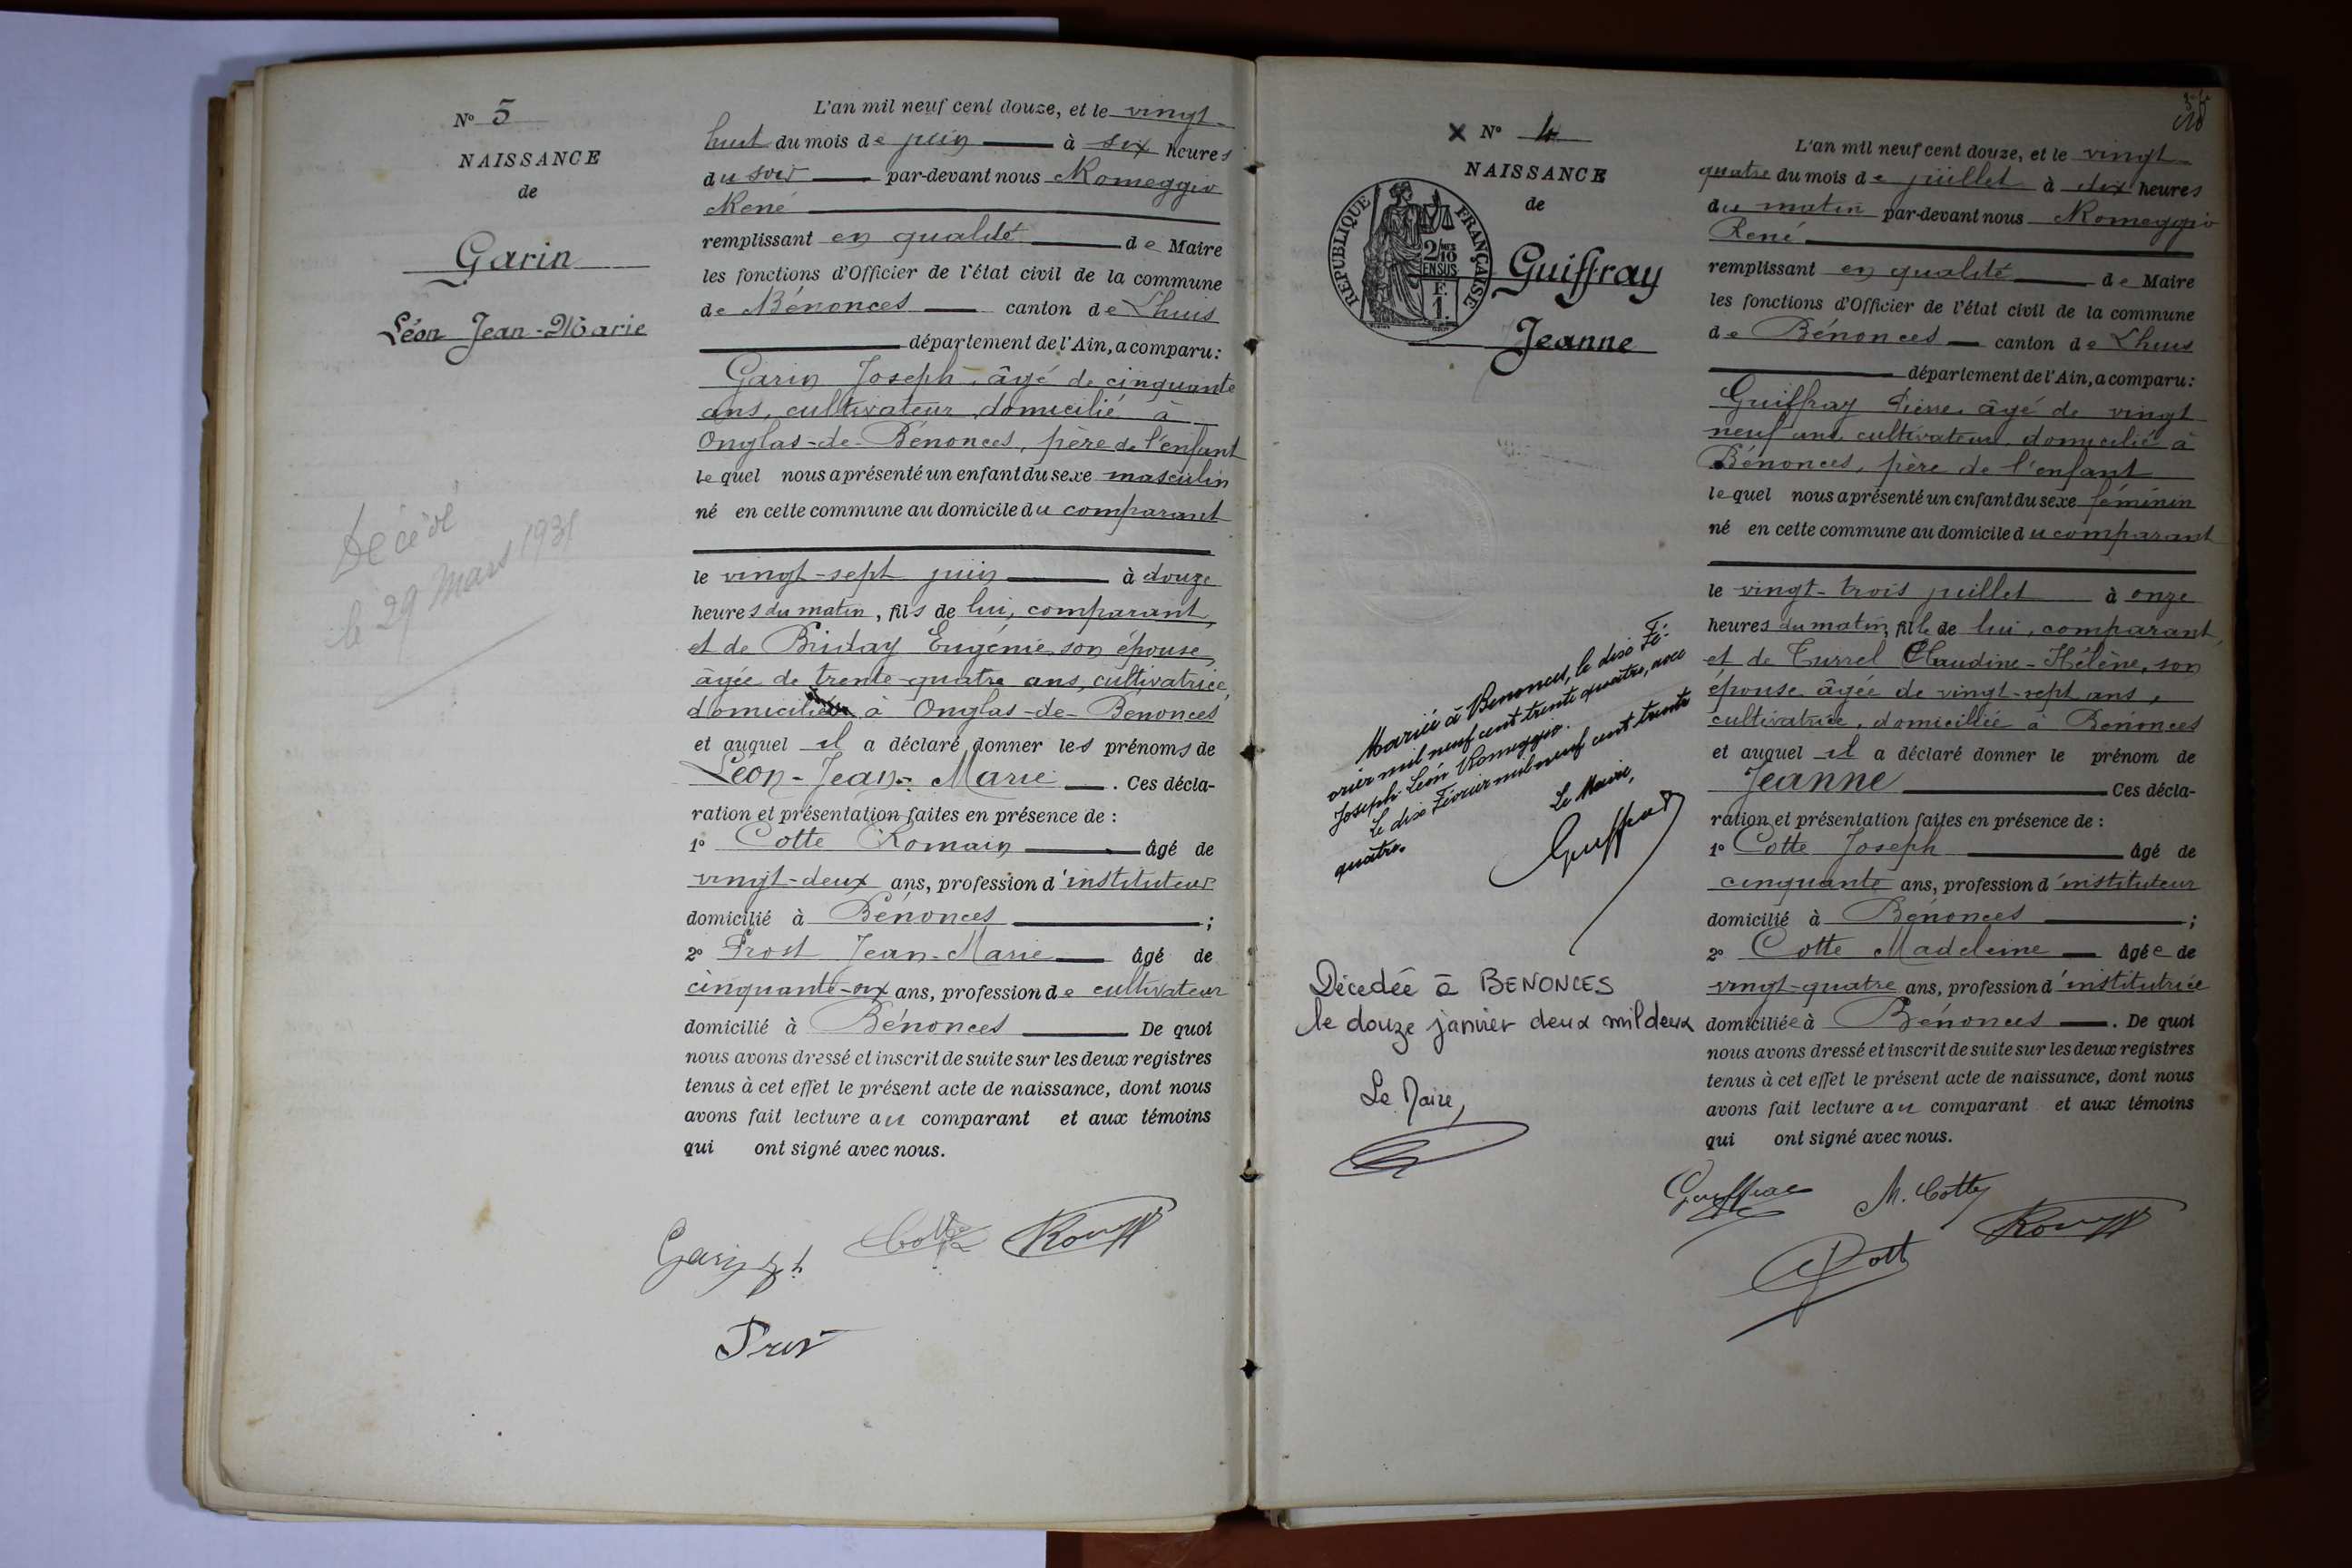 N° 3
NAISSANCE
de
Garin
Léon Jean-Marie
Décédé
le 29 Mars 1931
L'an mil neuf cent douze, et le vingt
huit du mois de juin à six heures
du soir par-devant nous Romeggio
René
remplissant en qualité de Maire
les fonctions d'Officier de l'état civil de la commune
de Bénonces canton de Lhuis
département de l'Ain, a comparu:
Garin Joseph, âgé de cinquante
ans, cultivateur, domicilié à
Onglas-de-Bénonces, père de l'enfant
lequel nous a présenté un enfant du sexe masculin
né en cette commune au domicile du comparant
le vingt-sept juin à douze
heures du matin, fils de lui, comparant,
et de Eugénie, son épouse,
âgée de trente-quatre ans, cultivatrice,
domiciliée à Onglas-de-Bénonces
et auquel il a déclaré donner les prénoms de
Léon-Jean-Marie. Ces décla-
ration et présentation faites en présence de :
1° Cotte Romain âgé de
vingt-deux ans, profession d'instituteur
domicilié à Bénonces ;
2° Prost Jean-Marie âgé de
cinquante-six ans, profession de cultivateur
domicilié à Bénonces De quoi
nous avons dressé et inscrit de suite sur les deux registres
tenus à cet effet le présent acte de naissance, dont nous
avons fait lecture au comparant et aux témoins
qui ont signé avec nous.
Garin Jh
Cotte
Prost
X N° 4
NAISSANCE
de
RÉPUBLIQUE FRANÇAISE
2/10
EN SUS
F.
1.
Guiffray
Jeanne
Mariée à Benonces, le dix Fé-
vrier mil neuf cent trente quatre, avec
Joseph Léon Romeggio.
Le dix Février mil neuf cent trente
quatre.
Le Maire,
Guiffray
Décedée à BENONCES
le douze janvier deux mil deux
Le Maire,
L'an mil neuf cent douze, et le vingt
quatre du mois de juillet à dix heures
du matin par-devant nous Romeggio
René
remplissant en qualité de Maire
les fonctions d'Officier de l'état civil de la commune
de Bénonces canton de Lhuis
département de l'Ain, a comparu:
Guiffray Pierre, âgé de vingt
neuf ans cultivateur, domicilié à
Bénonces, père de l'enfant
lequel nous a présenté un enfant du sexe féminin
né en cette commune au domicile du comparant
le vingt-trois juillet à onze
heures du matin, fille de lui, comparant,
et de Turrel Claudine-Hélène, son
épouse âgée de vingt-sept ans,
cultivatrice, domiciliée à Bénonces
et auquel il a déclaré donner le prénom de
Jeanne Ces décla-
ration et présentation faites en présence de :
1° Cotte Joseph âgé de
cinquante ans, profession d'instituteur
domicilié à Bénonces ;
2° Cotte Madeleine âgée de
vingt-quatre ans, profession d'institutrice
domiciliée à Bénonces. De quoi
nous avons dressé et inscrit de suite sur les deux registres
tenus à cet effet le présent acte de naissance, dont nous
avons fait lecture au comparant et aux témoins
qui ont signé avec nous.
Guiffray
M. Cotte
Cotte